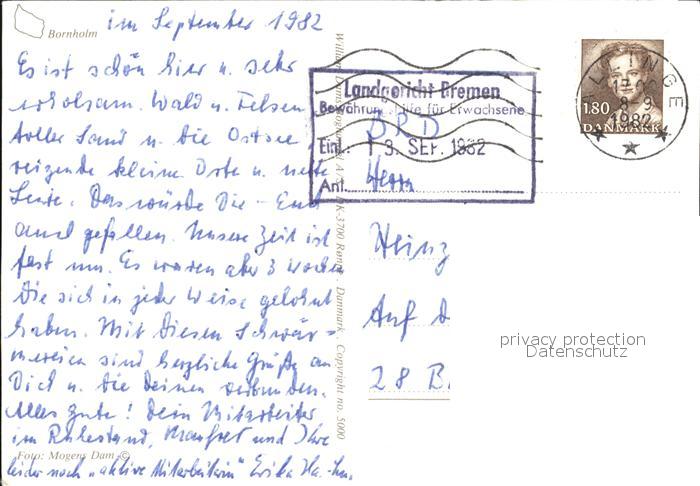 Bornholm
im September 1982
Es ist schön hier u. sehr
erholsam. Wald u. Felsen
toller Sand u. die Ostsee,
reizende kleine Orte u. nette
Leute. Das würde Dir - Euch
auch gefallen. Unsere Zeit ist
fast um. Es waren aber 3 Wochen
die sich in jeder Weise gelohnt
haben. Mit diesen Schwär=
mereien sind herzliche Grüße an
Dich u. die Deinen verbunden.
Alles Gute! Dein Mitarbeiter
im Ruhestand, Manfred und Ihre
leider noch "aktive Mitarbeiterin" Erika
Foto: Mogens Dam ©
DK-3700 Rønne . Danmark . Copyright no. 5000
Landgericht Bremen
Bewährungshilfe für Erwachsene
BRD
Eing.: 13. SEP. 1982
Ant.
Herrn
Heinz
Auf d
28 B
1.80
DANMARK
8.9.
1982
privacy protection
Datenschutz